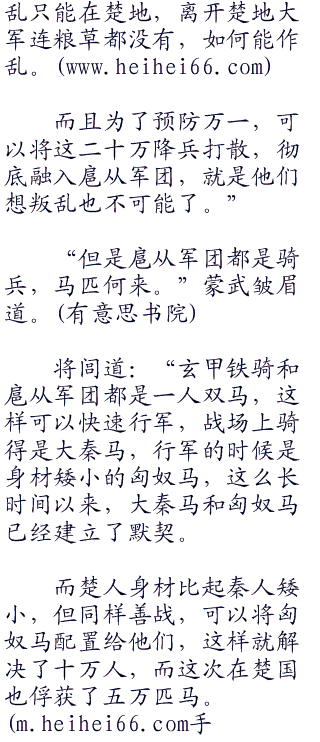 乱只能在楚地，离开楚地大
军连粮草都没有，如何能作
乱。(www.heihei66.com)
而且为了预防万一，可
以将这二十万降兵打散，彻
底融入扈从军团，就是他们
想叛乱也不可能了。”
“但是扈从军团都是骑
兵，马匹何来。”蒙武皱眉
道。(有意思书院)
将闾道：“玄甲铁骑和
扈从军团都是一人双马，这
样可以快速行军，战场上骑
得是大秦马，行军的时候是
身材矮小的匈奴马，这么长
时间以来，大秦马和匈奴马
已经建立了默契。
而楚人身材比起秦人矮
小，但同样善战，可以将匈
奴马配置给他们，这样就解
决了十万人，而这次在楚国
也俘获了五万匹马。
(m.heihei66.com手